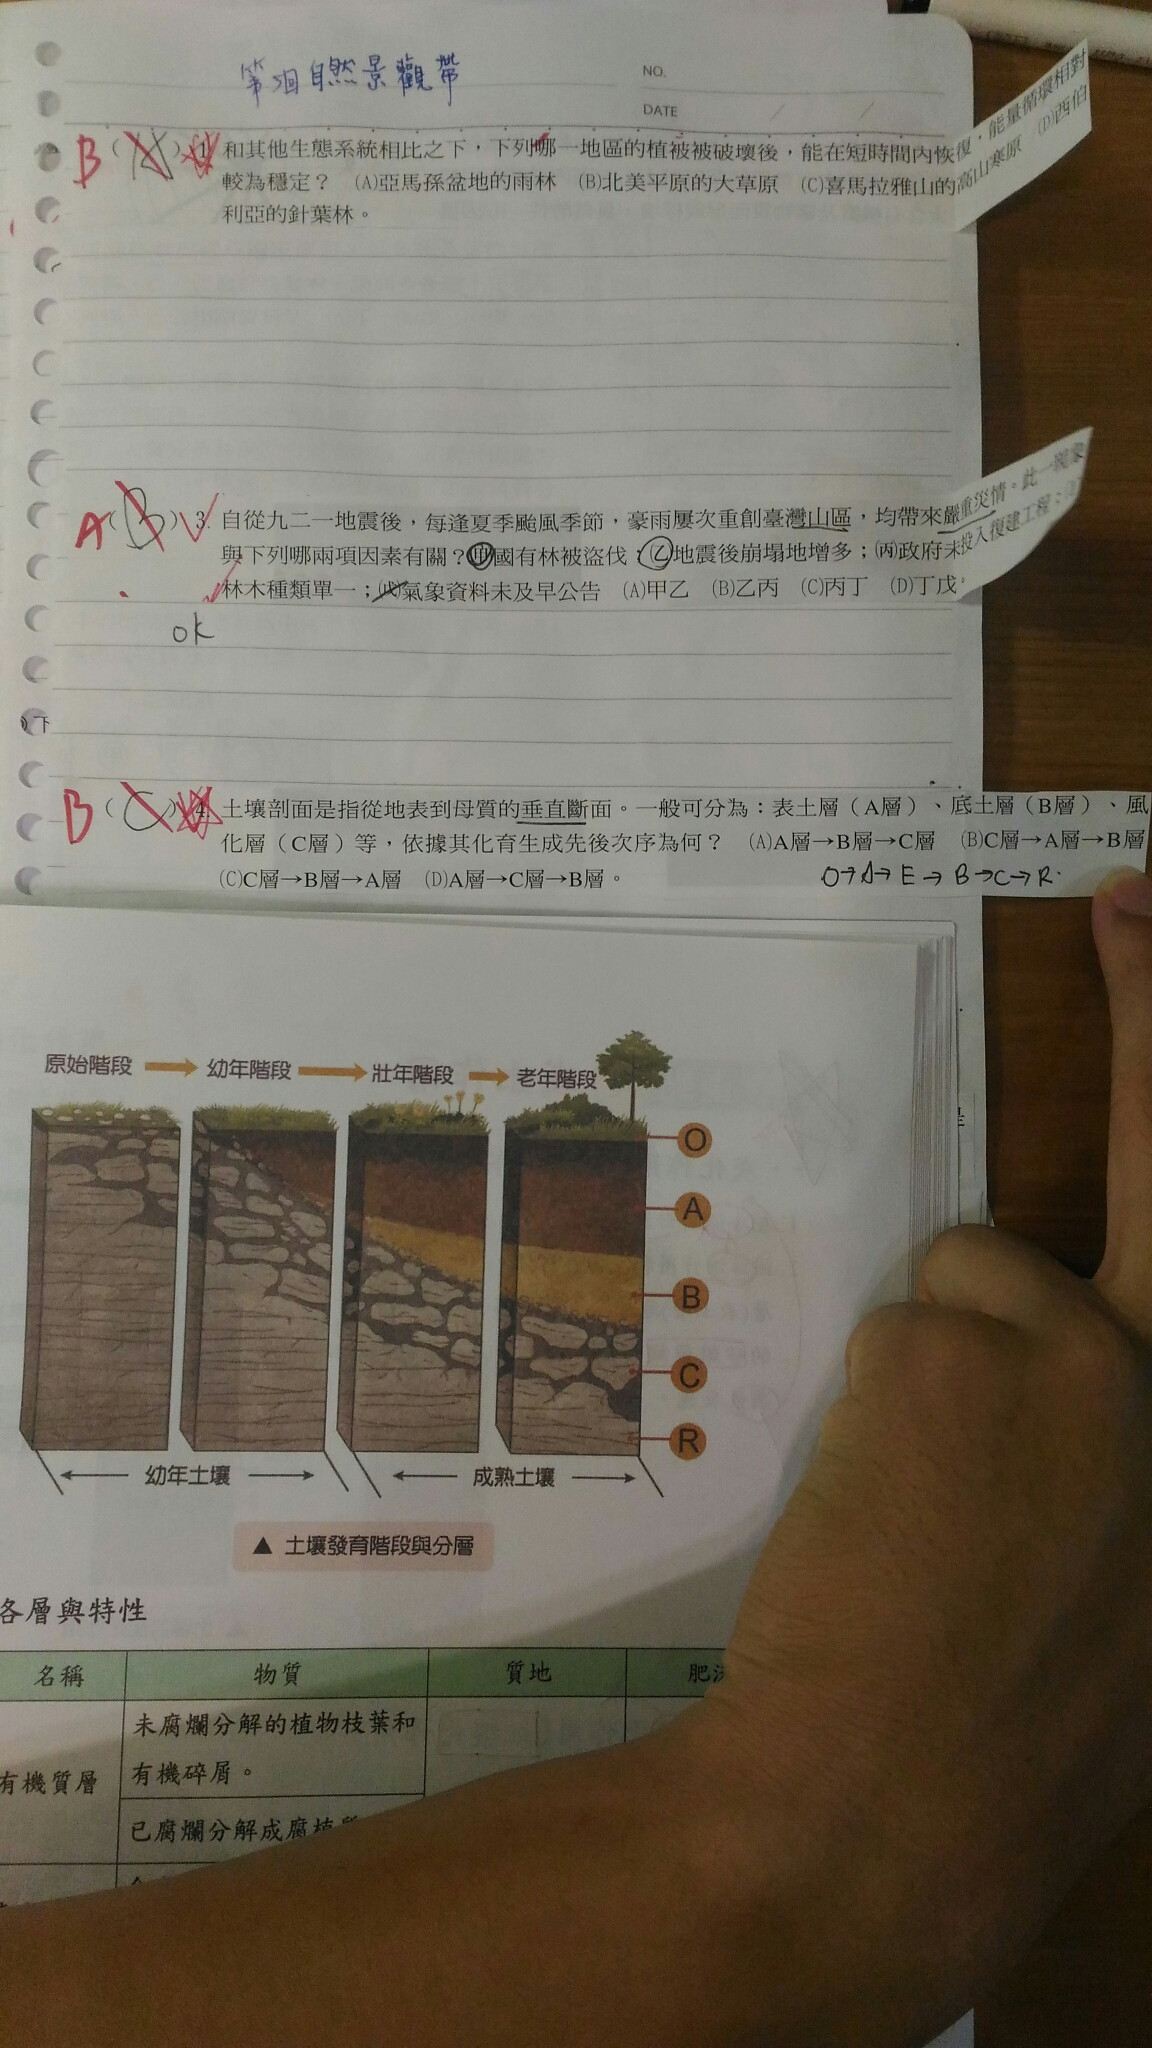 第3回自然景觀帶
NO.
DATE
B ( A ) 1. 和其他生態系統相比之下，下列哪一地區的植被被破壞後，能在短時間內恢復，能量循環相對
較為穩定？ (A)亞馬孫盆地的雨林 (B)北美平原的大草原 (C)喜馬拉雅山的高山寒原 (D)西伯
利亞的針葉林。
A ( B ) 3. 自從九二一地震後，每逢夏季颱風季節，豪雨屢次重創臺灣山區，均帶來嚴重災情。此一現象
與下列哪兩項因素有關？(甲)國有林被盜伐；(乙)地震後崩塌地增多；(丙)政府未投入復建工程；
林木種類單一；(戊)氣象資料未及早公告 (A)甲乙 (B)乙丙 (C)丙丁 (D)丁戊。
ok
下
B ( C ) 4. 土壤剖面是指從地表到母質的垂直斷面。一般可分為：表土層（A層）、底土層（B層）、風
化層（C層）等，依據其化育生成先後次序為何？ (A)A層→B層→C層 (B)C層→A層→B層
(C)C層→B層→A層 (D)A層→C層→B層。
O→A→E→B→C→R.
原始階段 → 幼年階段 → 壯年階段 → 老年階段
O
A
B
C
R
幼年土壤
成熟土壤
▲ 土壤發育階段與分層
各層與特性
名稱 物質 質地 肥
未腐爛分解的植物枝葉和
有機碎屑。
有機質層
已腐爛分解成腐植質